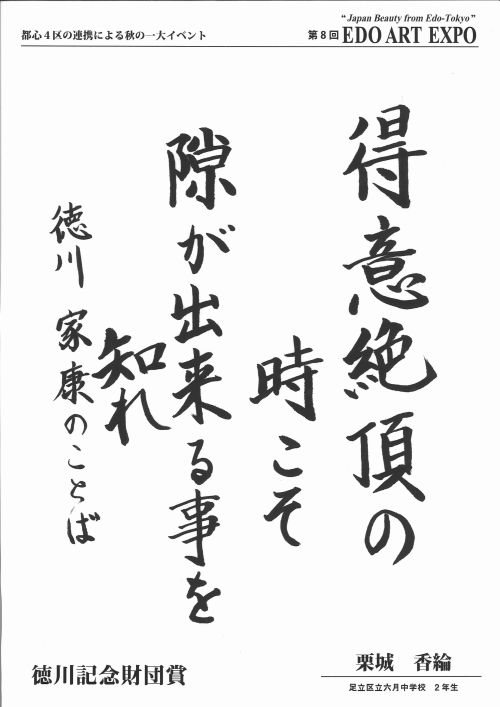 "Japan Beauty from Edo-Tokyo"
都心4区の連携による秋の一大イベント
第8回 EDO ART EXPO
得意絶頂の
時こそ
隙が出来る事を
知れ
徳川 家康のことば
徳川記念財団賞
栗城 香綸
足立区立六月中学校 2年生